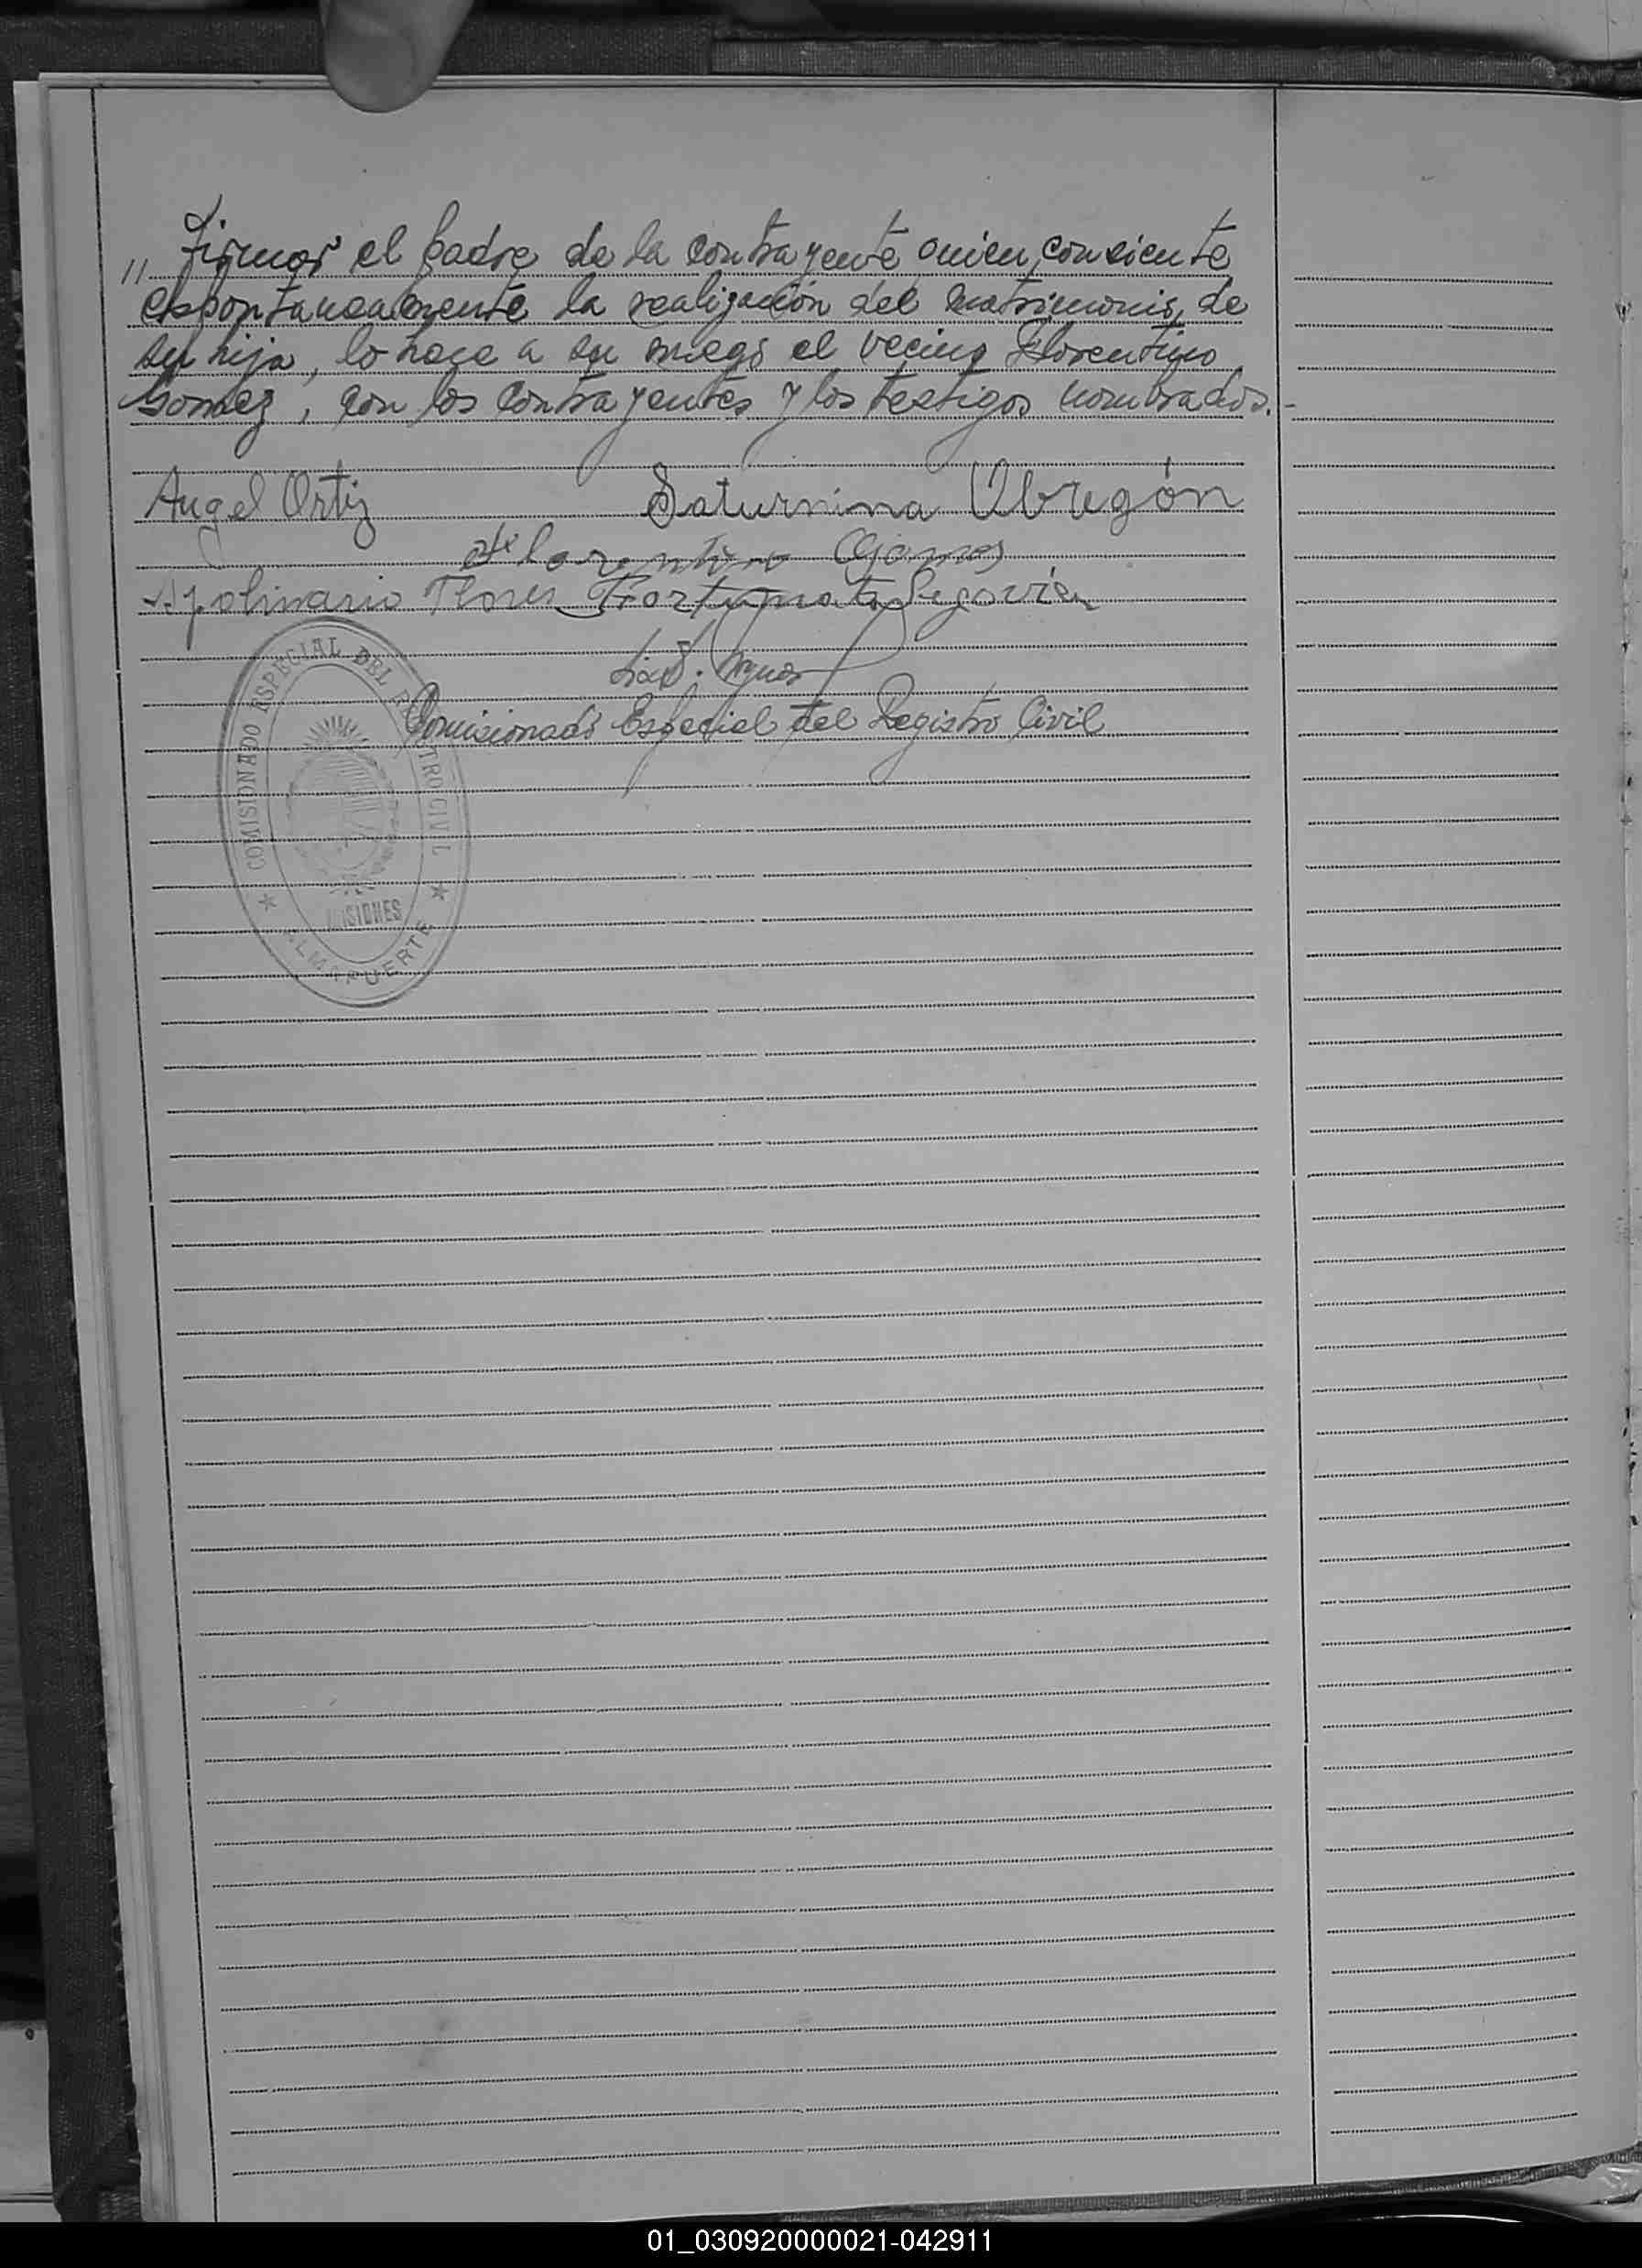 " firmar el padre de la contrayente quien, consiente
espontaneamente la realización del matrimonio, de
su hija, lo hace a su ruego el vecino Florentino
Gomez, con los contrayentes y los testigos nombrados.-
Angel Ortiz Saturnina Obregón
Florentino Gomes
Apolinario Flores Fortunato Segovia
Comisionado Especial del Registro Civil
COMISIONADO ESPECIAL DEL REGISTRO CIVIL
MISIONES
ALMAFUERTE
01_030920000021-042911